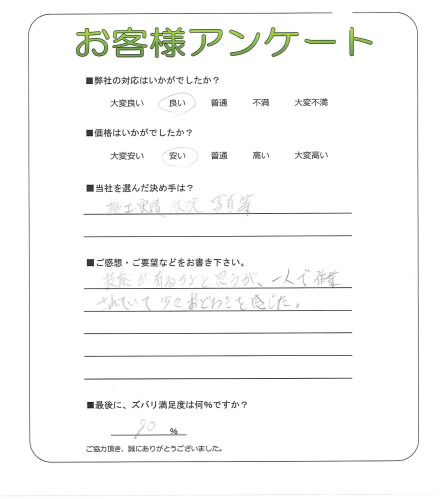 お客様アンケート
■弊社の対応はいかがでしたか?
大変良い 良い 普通 不満 大変不満
■価格はいかがでしたか?
大変安い 安い 普通 高い 大変高い
■当社を選んだ決め手は?
施工実績 状況 写真等
■ご感想・ご要望などをお書き下さい。
技能が有るからと思うが、一人で作業
されていて少々おどろきを感じた。
■最後に、ズバリ満足度は何%ですか?
90 %
ご協力頂き、誠にありがとうございました。